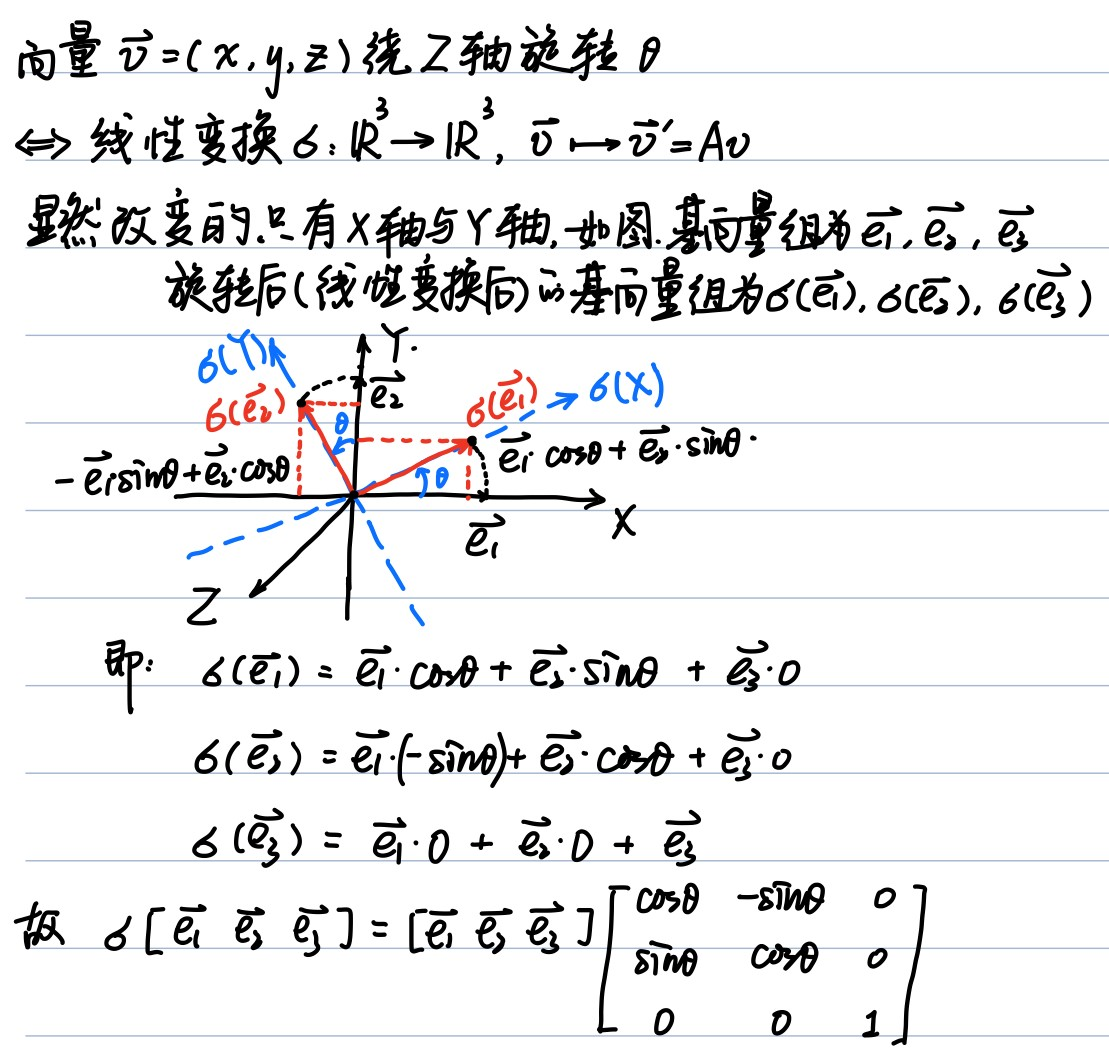 向量 v⃗=(x,y,z)绕Z轴旋转 θ
⟺ 线性变换 σ: ℝ³→ℝ³, v⃗ ↦ v⃗′=Av
显然改变的只有X轴与Y轴,如图.基向量组为e₁⃗,e₂⃗,e₃⃗
旋转后(线性变换后)的基向量组为σ(e₁⃗),σ(e₂⃗),σ(e₃⃗)
σ(Y) Y.
σ(e₂⃗) e₂⃗ σ(e₁⃗) σ(X)
θ e₁⃗·cosθ+e₂⃗·sinθ·
-e₁⃗·sinθ+e₂⃗·cosθ θ
e₁⃗ X
Z
即: σ(e₁⃗) = e₁⃗·cosθ + e₂⃗·sinθ + e₃⃗·0
σ(e₂⃗) = e₁⃗·(-sinθ)+ e₂⃗·cosθ + e₃⃗·0
σ(e₃⃗) = e₁⃗·0 + e₂⃗·0 + e₃⃗
cosθ -sinθ 0
故 σ[e₁⃗ e₂⃗ e₃⃗]=[e₁⃗ e₂⃗ e₃⃗]
sinθ cosθ 0
0 0 1